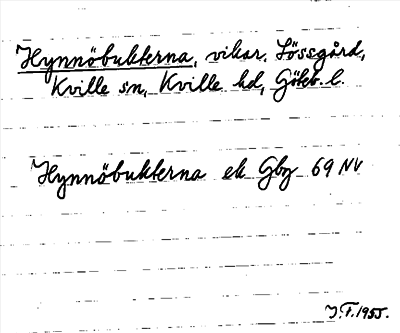 Hynnöbukterna, vikar, Lössgård,
Kville sn, Kville hd, Göteb. l.
Hynnöbukterna ek Gbg 69 NV
J.F. 1955.